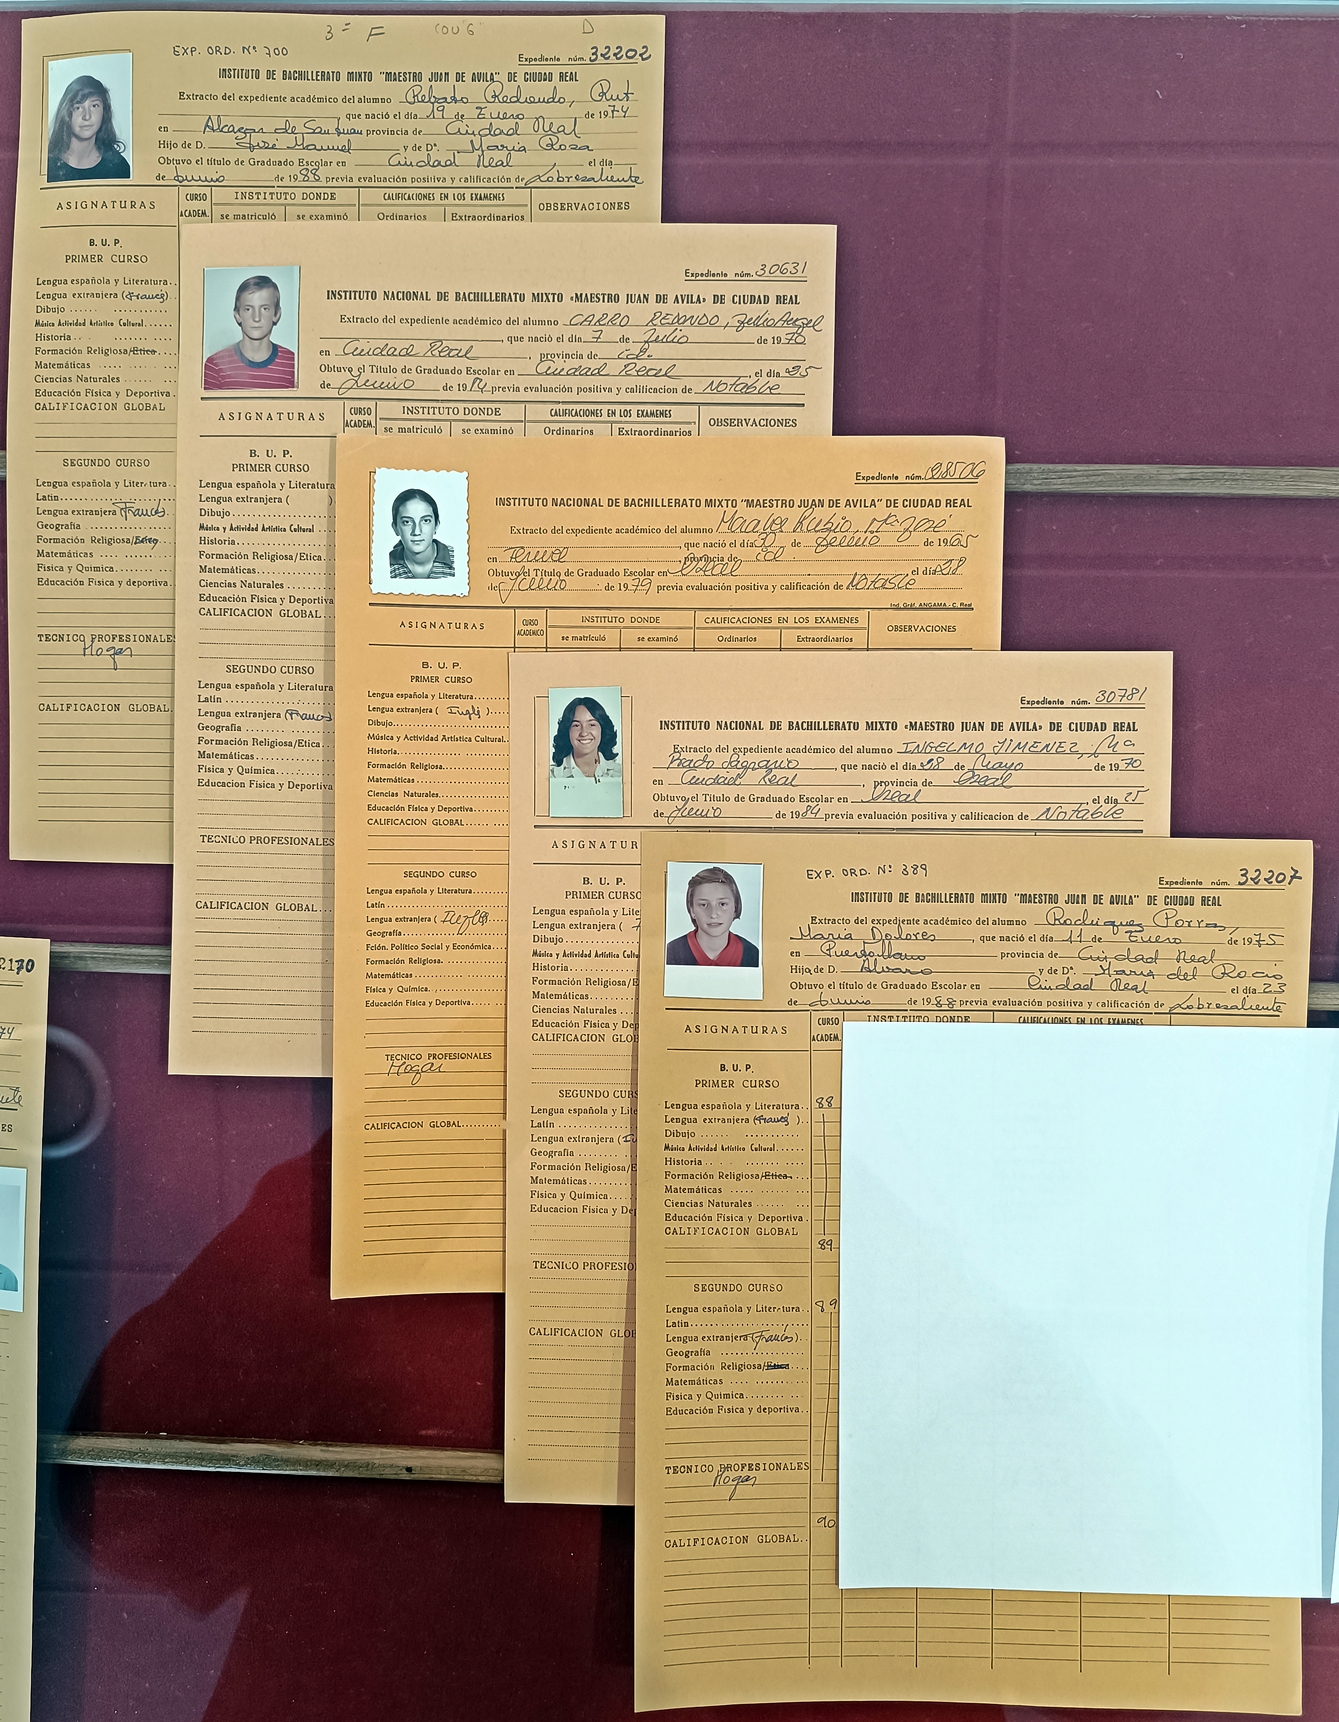 3º F COU G D
EXP. ORD. Nº 700
Expediente núm. 32202
INSTITUTO DE BACHILLERATO MIXTO "MAESTRO JUAN DE AVILA" DE CIUDAD REAL
Extracto del expediente académico del alumno Rebato Redondo, Rut
que nació el día 19 de Enero de 1974
en Alcazar de San Juan provincia de Ciudad Real
Hijo de D. José Manuel y de Dª. Maria Rosa
Obtuvo el título de Graduado Escolar en Ciudad Real, el día
de Junio de 1988 previa evaluación positiva y calificación de Sobresaliente
ASIGNATURAS CURSO ACADEM. INSTITUTO DONDE CALIFICACIONES EN LOS EXAMENES OBSERVACIONES
se matriculó se examinó Ordinarios Extraordinarios
B. U. P.
PRIMER CURSO
Lengua española y Literatura..
Lengua extranjera (Francés)
Dibujo
Música Actividad Artístico Cultural
Historia
Formación Religiosa/Etica
Matemáticas
Ciencias Naturales
Educación Física y Deportiva
CALIFICACION GLOBAL
SEGUNDO CURSO
Lengua española y Literatura
Latín
Lengua extranjera (Francés)
Geografía
Formación Religiosa/Etica
Matemáticas
Física y Química
Educación Física y deportiva
TECNICO PROFESIONALES
Hogar
CALIFICACION GLOBAL
Expediente núm. 30631
INSTITUTO NACIONAL DE BACHILLERATO MIXTO «MAESTRO JUAN DE AVILA» DE CIUDAD REAL
Extracto del expediente académico del alumno CARRO REDONDO, Julio Angel
, que nació el día 7 de Julio de 1970
en Ciudad Real, provincia de id.
Obtuvo el Título de Graduado Escolar en Ciudad Real, el día 25
de Junio de 1984 previa evaluación positiva y calificacion de Notable
ASIGNATURAS CURSO ACADEM. INSTITUTO DONDE CALIFICACIONES EN LOS EXAMENES OBSERVACIONES
se matriculó se examinó Ordinarios Extraordinarios
B. U. P.
PRIMER CURSO
Lengua española y Literatura
Lengua extranjera ( )
Dibujo
Música y Actividad Artístico Cultural
Historia
Formación Religiosa/Etica
Matemáticas
Ciencias Naturales
Educación Física y Deportiva
CALIFICACION GLOBAL
SEGUNDO CURSO
Lengua española y Literatura
Latín
Lengua extranjera (Francés)
Geografía
Formación Religiosa/Etica
Matemáticas
Física y Química
Educacion Física y Deportiva
TECNICO PROFESIONALES
CALIFICACION GLOBAL
Expediente núm. 28506
INSTITUTO NACIONAL DE BACHILLERATO MIXTO "MAESTRO JUAN DE AVILA" DE CIUDAD REAL
Extracto del expediente académico del alumno Rubio, Mª José
, que nació el día 30 de Junio de 1965
en Teruel provincia de id
Obtuvo el Título de Graduado Escolar en C Real el día 28
de Junio de 1979 previa evaluación positiva y calificación de Notable
Ind. Gráf. ANGAMA - C. Real
ASIGNATURAS CURSO ACADEMICO INSTITUTO DONDE CALIFICACIONES EN LOS EXAMENES OBSERVACIONES
se matriculó se examinó Ordinarios Extraordinarios
B. U. P.
PRIMER CURSO
Lengua española y Literatura
Lengua extranjera ( Inglé )
Dibujo
Música y Actividad Artística Cultural
Historia
Formación Religiosa
Matemáticas
Ciencias Naturales
Educación Física y Deportiva
CALIFICACION GLOBAL
SEGUNDO CURSO
Lengua española y Literatura
Latín
Lengua extranjera (Inglés)
Geografía
Fción. Político Social y Económica
Formación Religiosa
Matemáticas
Física y Química
Educación Física y Deportiva
TECNICO PROFESIONALES
Hogar
CALIFICACION GLOBAL
Expediente núm. 30781
INSTITUTO NACIONAL DE BACHILLERATO MIXTO «MAESTRO JUAN DE AVILA» DE CIUDAD REAL
Extracto del expediente académico del alumno INGELMO JIMENEZ, Mª
Prado Sagrario, que nació el día 28 de Mayo de 1970
en Ciudad Real, provincia de C Real
Obtuvo el Título de Graduado Escolar en C Real, el día 25
de Junio de 1984 previa evaluación positiva y calificacion de Notable
ASIGNATURA
B. U. P.
PRIMER CURSO
Lengua española y Lite
Lengua extranjera (
Dibujo
Música y Actividad Artístico Cultu
Historia
Formación Religiosa/E
Matemáticas
Ciencias Naturales
Educación Física y Dep
CALIFICACION GLOB
SEGUNDO CURS
Lengua española y Lite
Latín
Lengua extranjera (
Geografía
Formación Religiosa/E
Matemáticas
Física y Química
Educacion Física y De
TECNICO PROFESIO
CALIFICACION GLOB
EXP. ORD. Nº 389
Expediente núm. 32207
INSTITUTO DE BACHILLERATO MIXTO "MAESTRO JUAN DE AVILA" DE CIUDAD REAL
Extracto del expediente académico del alumno Rodriguez Porras,
Maria Dolores, que nació el día 11 de Enero de 1975
en Puertollano provincia de Ciudad Real
Hijo de D. Alvaro y de Dª. Maria del Rocio
Obtuvo el título de Graduado Escolar en Ciudad Real el día 23
de Junio de 1988 previa evaluación positiva y calificación de Sobresaliente
ASIGNATURAS CURSO ACADEM. INSTITUTO DONDE CALIFICACIONES EN LOS EXAMENES
B. U. P.
PRIMER CURSO
Lengua española y Literatura.. 88
Lengua extranjera (Francés)
Dibujo
Música Actividad Artístico Cultural
Historia
Formación Religiosa/Etica
Matemáticas
Ciencias Naturales
Educación Física y Deportiva
CALIFICACION GLOBAL
89
SEGUNDO CURSO
Lengua española y Literatura.. 89
Latín
Lengua extranjera (Francés)
Geografía
Formación Religiosa/Etica
Matemáticas
Física y Química
Educación Física y deportiva
TECNICO PROFESIONALES
Hogar
90
CALIFICACION GLOBAL
2170
74
ES